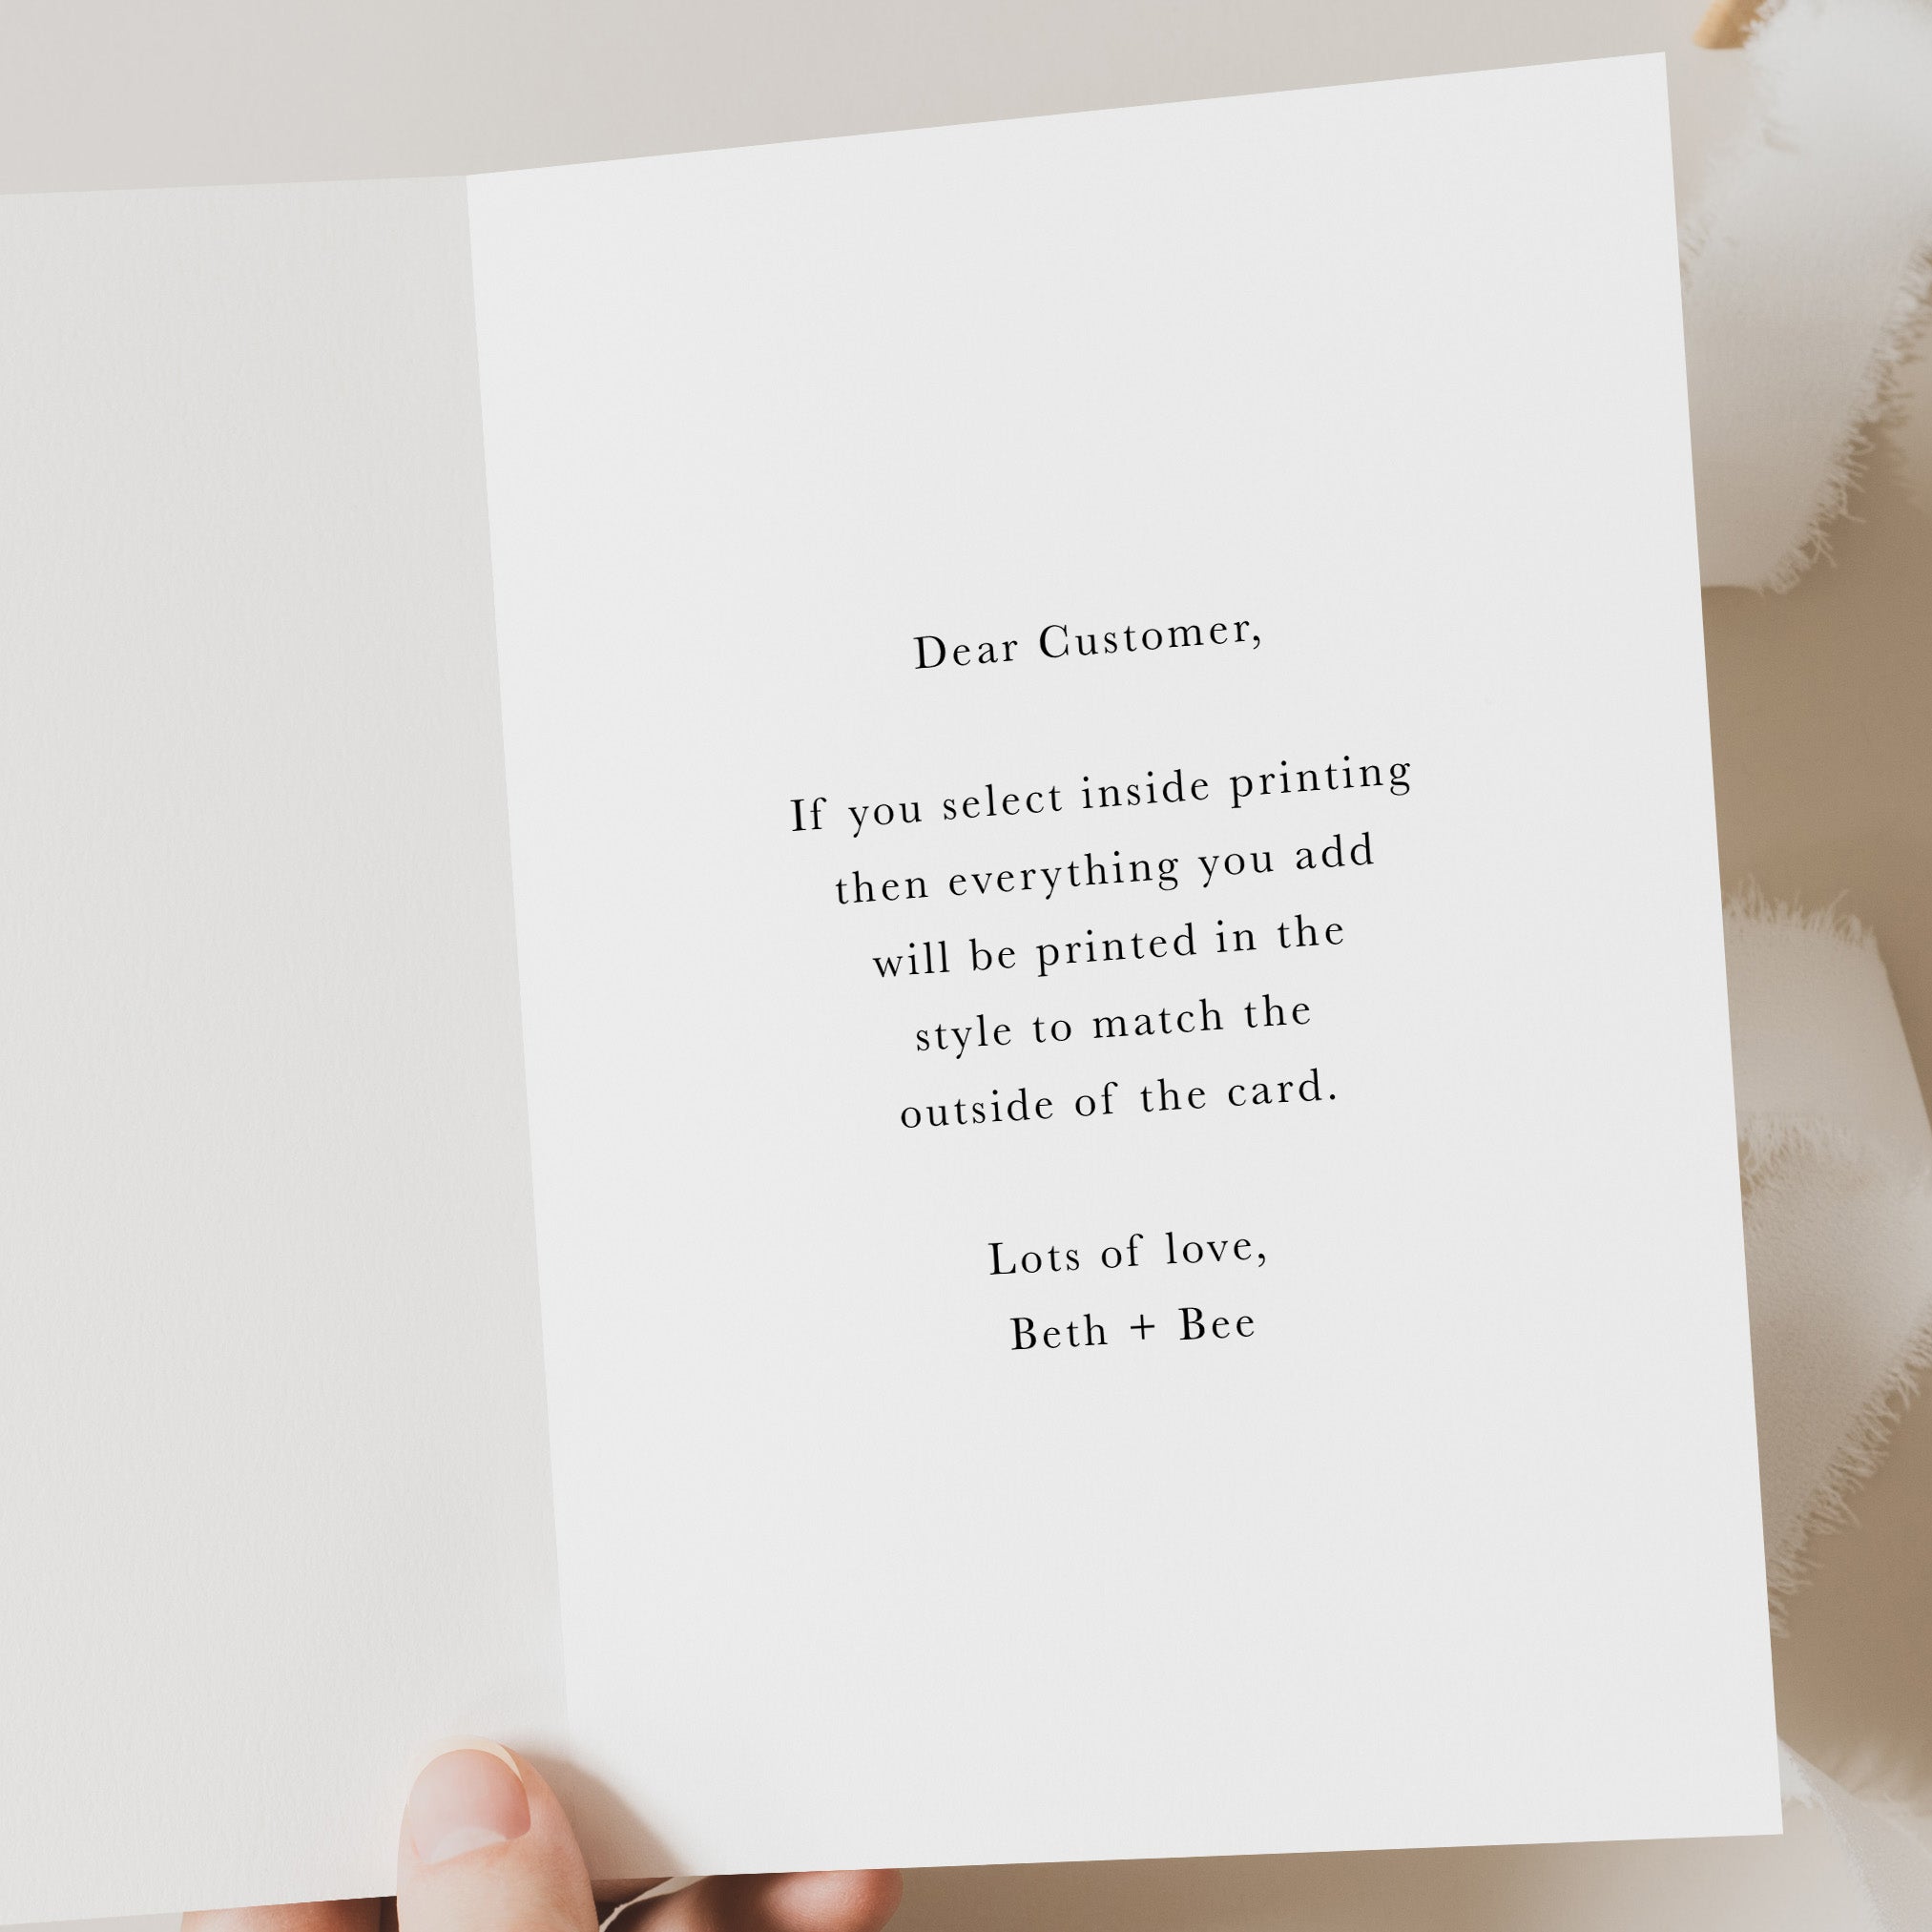 Dear Customer,
If you select inside printing
then everything you add
will be printed in the
style to match the
outside of the card.
Lots of love,
Beth + Bee